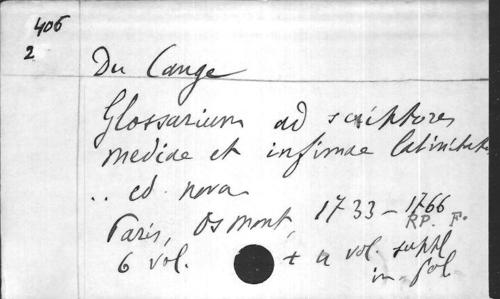 406
2
Du Cange
Glossarium ad scriptores
mediae et infimae latinitatis
.. ed. nova
Paris, Osmont, 1733 – 1766
RP. F.
6 vol. + 4 vol. suppl
in-fol